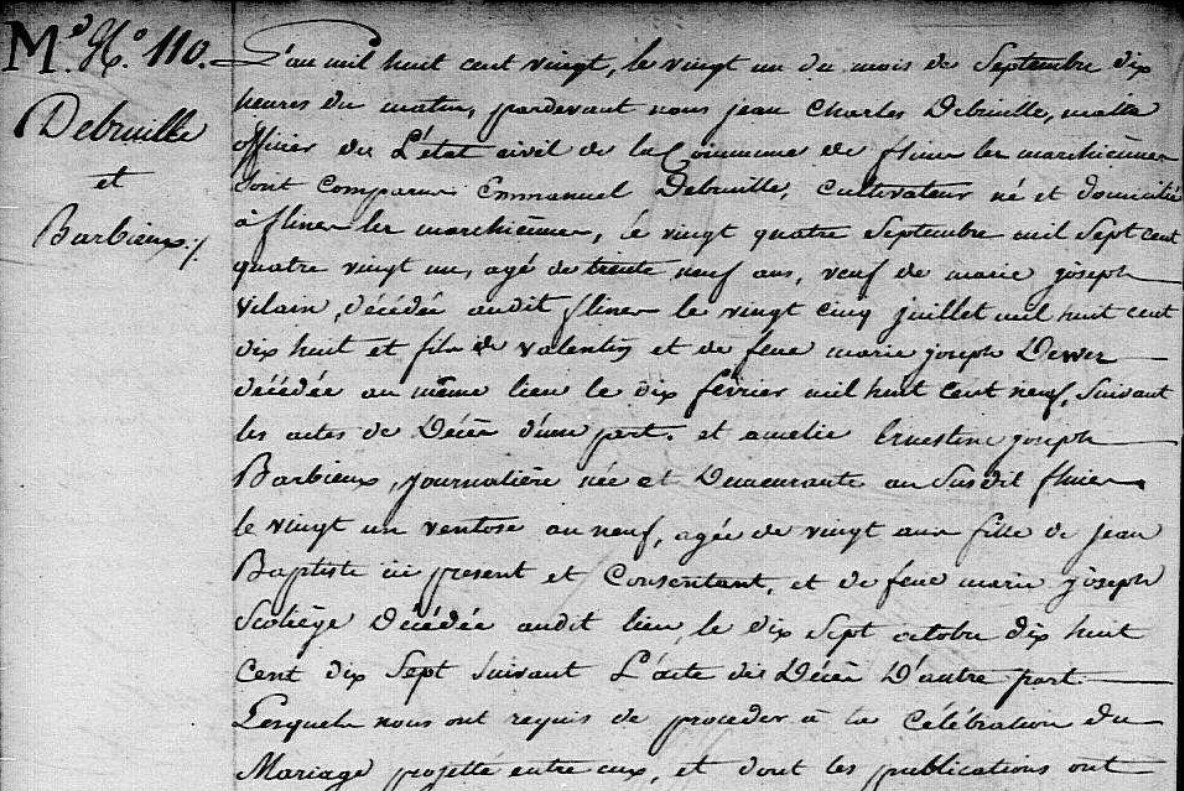 M.d N.o 110.
Debruille
et
Barbieux ./.
L'an mil huit cent vingt, le vingt un du mois de Septembre dix
heures du matin, pardevant nous jean Charles Debruille, maire
officier de L'état civil de la Commune de flines lez marchiennes
Sont Comparus Emmanuel Debruille, cultivateur né et domicilié
à flines lez marchiennes, le vingt quatre Septembre mil Sept cent
quatre vingt un, agé de trente neuf ans, veuf de marie joseph
Vilain, décédée audit flines le vingt cinq juillet mil huit cent
dix huit et fils de valentin et de feue marie joseph Dewez
décédée au même lieu le dix février mil huit Cent neuf, Suivant
les actes de Décès d'une part. et amelie Ernestine joseph
Barbieux, journalière née et Demeurante au Susdit flines
le vingt un ventose an neuf, agée de vingt ans fille de jean
Baptiste ici present et Consentant, et de feue marie joseph
Scoliège Décédée audit lieu, le dix Sept octobre dix huit
Cent dix Sept Suivant L'acte de Décès D'autre part
Lesquels nous ont requis de proceder à la Célébration du
Mariage projetté entre eux, et dont les publications ont